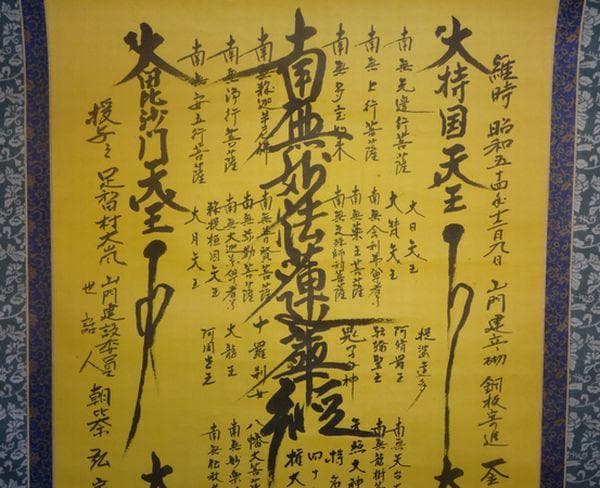 維時 昭和五十四年十二月九日 山門建立砌 銅板寄進 一金
大持国天王
南無無辺行菩薩
南無上行菩薩
南無多宝如来
南無妙法蓮華経
南無釈迦牟尼佛
南無浄行菩薩
南無安立行菩薩
大毘沙門天王
大日天王
大梵天王
南無舎利弗尊者
南無薬王菩薩
南無文殊師利菩薩
南無普賢菩薩
南無弥勒菩薩
南無大迦葉尊者
釋提桓因天王
大月天王
提婆達多
阿修羅王
転輪聖王
鬼子母神
十羅刹女
大龍王
阿闍世王
南無天台大
天照大神
八幡大菩
南無妙楽
授与之 足智村大嵐 山門建設委員 朝比奈
世話人